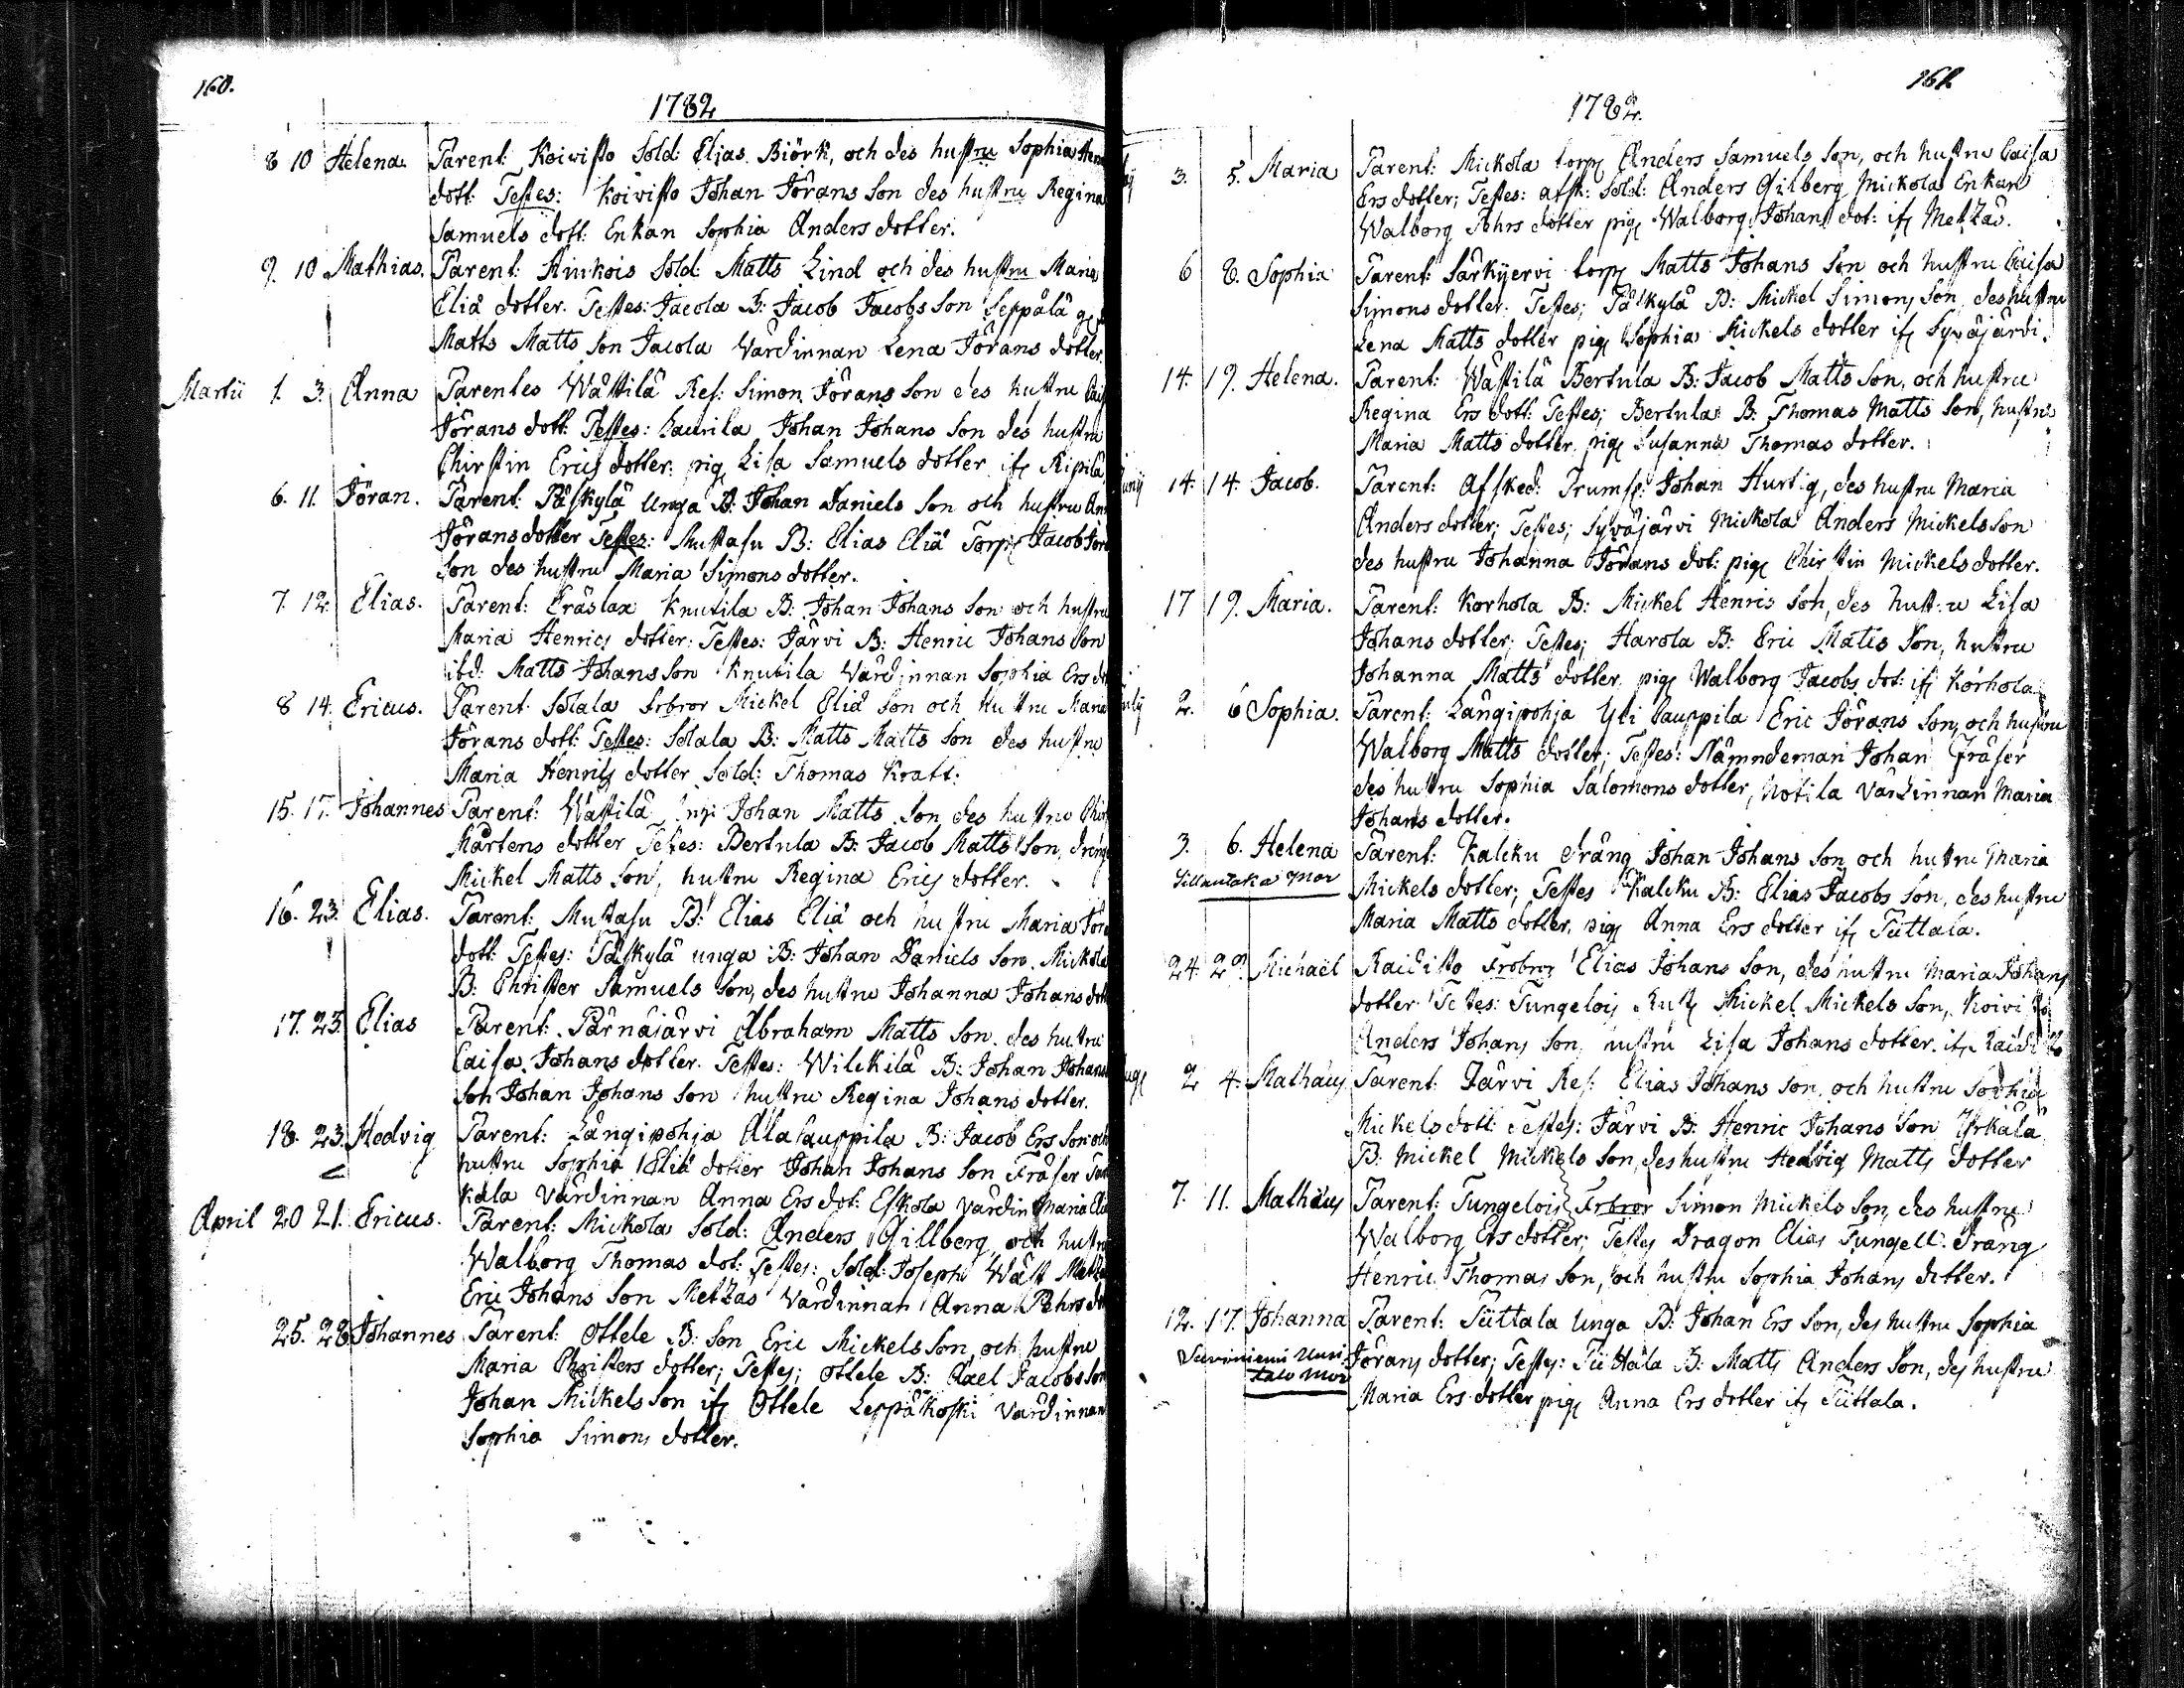 160.
1782
8 10 Helena Parent: Koivisto Sold: Elias Biörk, och des hustru Sophia
dott: Testes: Koivisto Johan Jörans Son des hustru Regina
Samuels dott: Enkan Sophia Anders dotter.
9. 10 Mathias. Parent: Sold: Matts Lind och des hustru Maria
Eliä dotter. Testes: Jacola B: Jacob Jacobs Son Seppälä
Matts Matts Son Jacola Värdinnan Lena Jörans dotter
Martii 1. 3. Anna Parentes Wästilä Ref: Simon Jörans Son des hustru
Jörans dott: Testes: Laurila Johan Johans Son des hustru
Chirstin Erics dotter: pig Lisa Samuels dotter if Ripilä
6. 11. Jöran. Parent: Päskylä Unga B: Johan Daniels Son och hustru
Jörans dotter Testes: Mustasu B: Elias Eliä Torp: Jacob
Son des hustru Maria Simons dotter.
7. 12 Elias. Parent: Eräslax Knutila B: Johan Johans Son och hustru
Maria Henrics dotter: Testes: Järvi B: Henric Johans Son
ibd: Matts Johans Son Knutila Värdinnan Sophia Ers
8 14. Ericus. Parent: Solala Frbror Mickel Eliä Son och hustru Maria
Jörans dott: Testes: Solala B: Matts Matts Son des hustru
Maria Henrics dotter Sold: Thomas Kratt.
15. 17. Johannes Parent: Wästilä Johan Matts Son des hustru
Mårtens dotter Testes: Bertula B: Jacob Matts Son, dreng
Mickel Matts Son, hustru Regina Erics dotter.
16. 23. Elias. Parent: Mustasu B: Elias Eliä och hustru Maria
dott: Testes: Päskylä unga B: Johan Daniels Son. Mickola
B: Christer Samuels Son, des hustru Johanna Johans
17. 23 Elias Parent: Pärnäjärvi Abraham Matts Son des hustru
Caisa Johans dotter. Testes: Wilckilä B: Johan Johans
Son Johan Johans Son hustru Regina Johans dotter.
18. 23. Hedvig Parent: Långipohja Alasauppila B: Jacob Ers Son och
hustru Sophia Eliä dotter Johan Johans Son Fräser
kala Värdinnan Anna Ers dot: Eskola värdin Maria
April 20 21. Ericus. Parent: Mickola Sold: Anders Gillberg, och hustru
Walborg Thomas dot: Testes: Sold: Joseph Wäst
Eric Johans Son Metzas Värdinnan Anna Pehrs
25. 28 Johannes Parent: Ottele B: Son Eric Mickels Son, och hustru
Maria Christers dotter; Testes; Ottele B: Axel Jacobs Son
Johan Mickels Son if Ottele Leppäkoski Värdinnan
Sophia Simons dotter.
162
1782.
3. 5. Maria Parent: Mickola torp Anders Samuels Son, och hustru Caisa
Ers dotter; Testes: afsk: Sold: Anders Gilberg Mickola Enkan
Walborg Pehrs dotter pig Walborg Johans dot: if Metzas.
6 8. Sophia Parent: Särkijervi torp Matts Johans Son och hustru Caisa
Simons dotter. Testes; Päskylä B: Mickel Simons Son des hustru
Lena Matts dotter pig Sophia Mickels dotter if Syväjärvi.
14. 19. Helena. Parent: Wästilä Bertula B: Jacob Matts Son, och hustru
Regina Ers dott: Testes; Bertula B: Thomas Matts Son, hustru
Maria Matts dotter, pig Susanna Thomas dotter.
14. 14. Jacob. Parent: Afsked: Trumsl: Johan Hurtig, des hustru Maria
Anders dotter; Testes; Syväjärvi Mickola Anders Mickels Son
des hustru Johanna Jörans dot: pig Chirstin Mickels dotter.
17 19. Maria. Parent: Korhola B: Mickel Henrics Son, des hustru Lisa
Johans dotter; Testes; Harola B: Eric Matts Son, hustru
Johanna Matts dotter pig Walborg Jacobs dot: if Korhola
2. 6 Sophia. Parent: Långipohja Yli Sauppila Eric Jörans Son, och hustru
Walborg Matts dotter; Testes: Nämndeman Johan Fräser
des hustru Sophia Salomons dotter, Notila Värdinnan Maria
Johans dotter.
3. 6. Helena Parent: Kalcku Dräng Johan Johans Son och hustru Maria
Sillantaka Mor Mickels dotter; Testes Kalcku B: Elias Jacobs Son, des hustru
Maria Matts dotter, pig Anna Ers dotter if Tüttala.
24. 29. Michael Raidisto Frobror Elias Johans Son, des hustru Maria Johans
dotter Testes: Tungelois Rust Mickel Mickels Son, Koivisto
Anders Johans Son hustru Lisa Johans dotter. if Raidisto
2 4. Mathäus Parent: Järvi Ref: Elias Johans Son, och hustru Sophia
Mickels dott: Testes: Järvi B: Henric Johans Son Yrkälä
B: Mickel Mickels Son, des hustru Hedvig Matts dotter
7. 11. Mathäus Parent: Tungelois Frbror Simon Mickels Son, des hustru
Walborg Ers dotter; Testes Dragon Elias Tungell. Dräng
Henric Thomas Son, och hustru Sophia Johans dotter.
12. 17. Johanna Parent: Tüttala Unga B: Johan Ers Son, des hustru Sophia
Suviniemi Uusi Jörans dotter; Testes: Tüttala B: Matts Anders Son, des hustru
talo Mor Maria Ers dotter pig Anna Ers dotter if Tüttala.